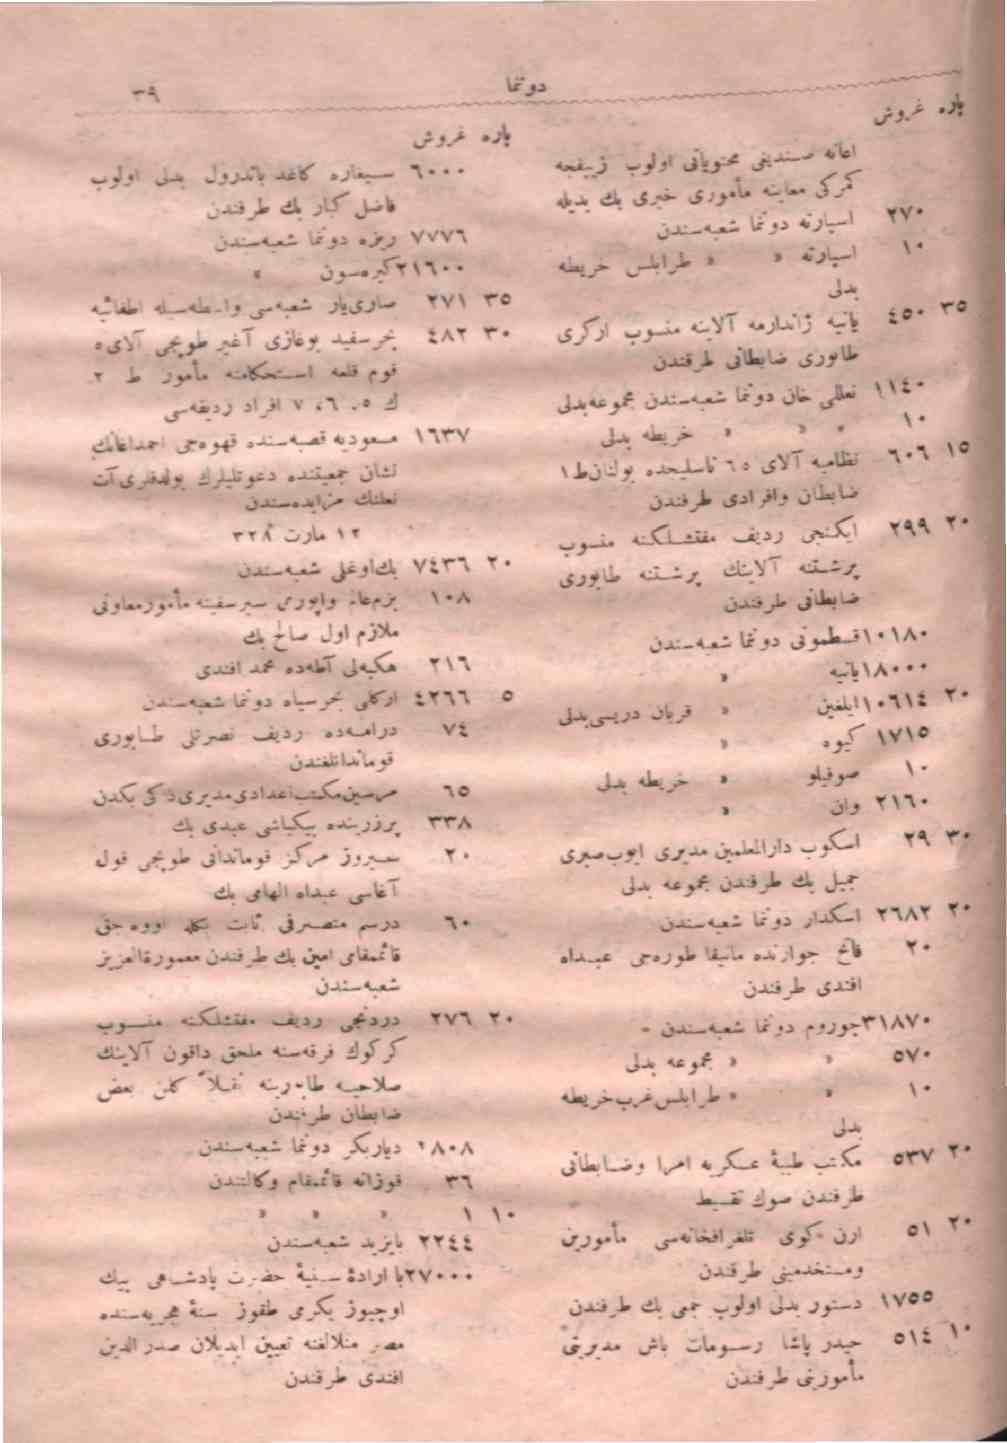 دوننما
٣٩
پاره غروش
اعانه صندیغی محتویاتی اولوب زییفجه
كمركی معاینه مأموری خبری بك یدیله
٢٧٠ اسپارته دوننما شعبه‌سندن
١٠ اسپارته » » طرابلس خریطه
بدلی
٣٥ ٤٥٠ یانیه ژاندارمه آلاینه منسوب ارکری
طابوری ضابطانی طرفندن
١١٤٠ نعللی خان دوننما شعبه‌سندن مجموعه بدلی
١٠ » » » خریطه بدلی
١٥ ٦٠٦ نظامیه آلای ٦٥ تاسلیجده بولنان ط ١
ضابطان وافرادی طرفندن
٢٠ ٢٩٩ ایكنجی ردیف مفتشلكنه منسوب
پرشتنه آلاینك پرشتنه طابوری
ضابطانی طرفندن
١٠١٨٠ قسطمونی دوننما شعبه‌سندن
١٨٠٠٠ یانیه »
٢٠ ١٠٦١٤ ایلغین » قربان دریسی بدلی
١٧١٥ كیوه »
١٠ صوفیلو » خریطه بدلی
٢١٦٠ وان »
٣٠ ٢٩ اسكوب دارالمعلمین مدیری ایوب صبری
جمیل بك طرفندن مجموعه بدلی
٢٠ ٢٦٨٢ اسكدار دوننما شعبه‌سندن
٢٠ فاتح جوارنده مانیفا طوره‌جی عبداه
افندی طرفندن
٣١٨٧٠ چوروم دوننما شعبه‌سندن
٥٧٠ » » مجموعه بدلی
١٠ » » طرابلس غرب خریطه
بدلی
٢٠ ٥٣٧ مكتب طبیهٔ عسكریه امرا وضابطانی
طرفندن صوك تقسیط
٢٠ ٥١ ارن كوی تلغرافخانه‌سی مأمورین
ومستخدمینی طرفندن
١٧٥٥ دستور بدلی اولوب حمی بك طرفندن
١٠ ٥١٤ حیدر پاشا رسومات باش مدیریتی
مأمورینی طرفندن
پاره غروش
٦٠٠٠ سیغاره كاغد باندرول بدلی اولوب
فاضل كبار بك طرفندن
٧٧٧٦ ریزه دوننما شعبه‌سندن
٢١٦٠٠ كیره‌سون »
٣٥ ٢٧١ صاری‌یار شعبه‌سی واسطه‌سیله اطفائیه
٣٠ ٤٨٢ بحرسفید بوغازی آغیر طوپجی آلای ٥
قوم قلعه استحكامنه مأمور ط ٢
ك ٥، ٦، ٧ افراد ردیفه‌سی
١٦٣٧ مسعودیه قصبه‌سنده قهوه‌جی احمداغانك
نشان جمعیتنده دعوتلیلرك بولدقلری آت
نعلنك مزایده‌سندن
١٢ مارت ٣٢٨
٢٠ ٧٤٣٦ بك‌اوغلی شعبه‌سندن
١٠٨ بزم‌عالم واپوری سیرسفینه مأمورمعاونی
ملازم اول صالح بك
٢١٦ هكبه‌لی آطه‌ده محمد افندی
٥ ٤٢٦٦ اركلی بحرسیاه دوننما شعبه‌سندن
٧٤ درامه‌ده ردیف نصرتلی طابوری
قومانداتلغندن
٦٥ مرسین مكتب اعدادی مدیری ذكی بكدن
٣٣٨ پرزرینده بیكباشی عبدی بك
٢٠ سیروز مركز قوماندانی طوپجی قول
آغاسی عبداه الهامی بك
٦٠ درسم متصرفی ثابت بكله اووه‌جق
قائممقامی امین بك طرفندن معمورةالعزیز
شعبه‌سندن
٢٠ ٢٧٦ دردنجی ردیف مفتشلكنه منسوب
كركوك فرقه‌سنه ملحق داقون آلاینك
صلاحیه طابورینه نقلاً كلن بعض
ضابطان طرفندن
٨٠٨ دیاربكر دوننما شعبه‌سندن
٣٦ قوزانه قائممقام وكالتندن
١٠ ١ » » »
٢٢٤٤ بایزید شعبه‌سندن
٢٧٠٠٠ با ارادهٔ سنیهٔ حضرت پادشاهی بیك
اوچیوز یكرمی طقوز سنهٔ هجریه‌سنده
مصر منلالغنه تعیین ایدیلان صدرالدین
افندی طرفندن